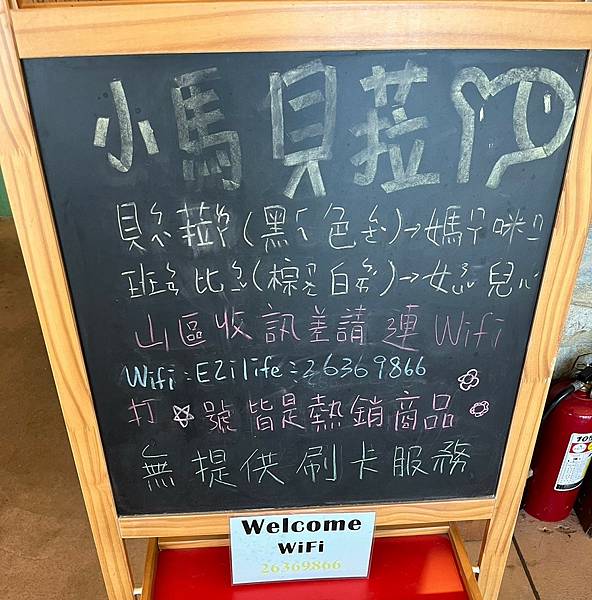 小馬貝菈
貝菈(黑色)→媽咪
班比(棕白)→女兒
山區收訊差請連Wifi
Wifi:EZilife:26369866
打☆號皆是熱銷商品
無提供刷卡服務
Welcome
WiFi
26369866